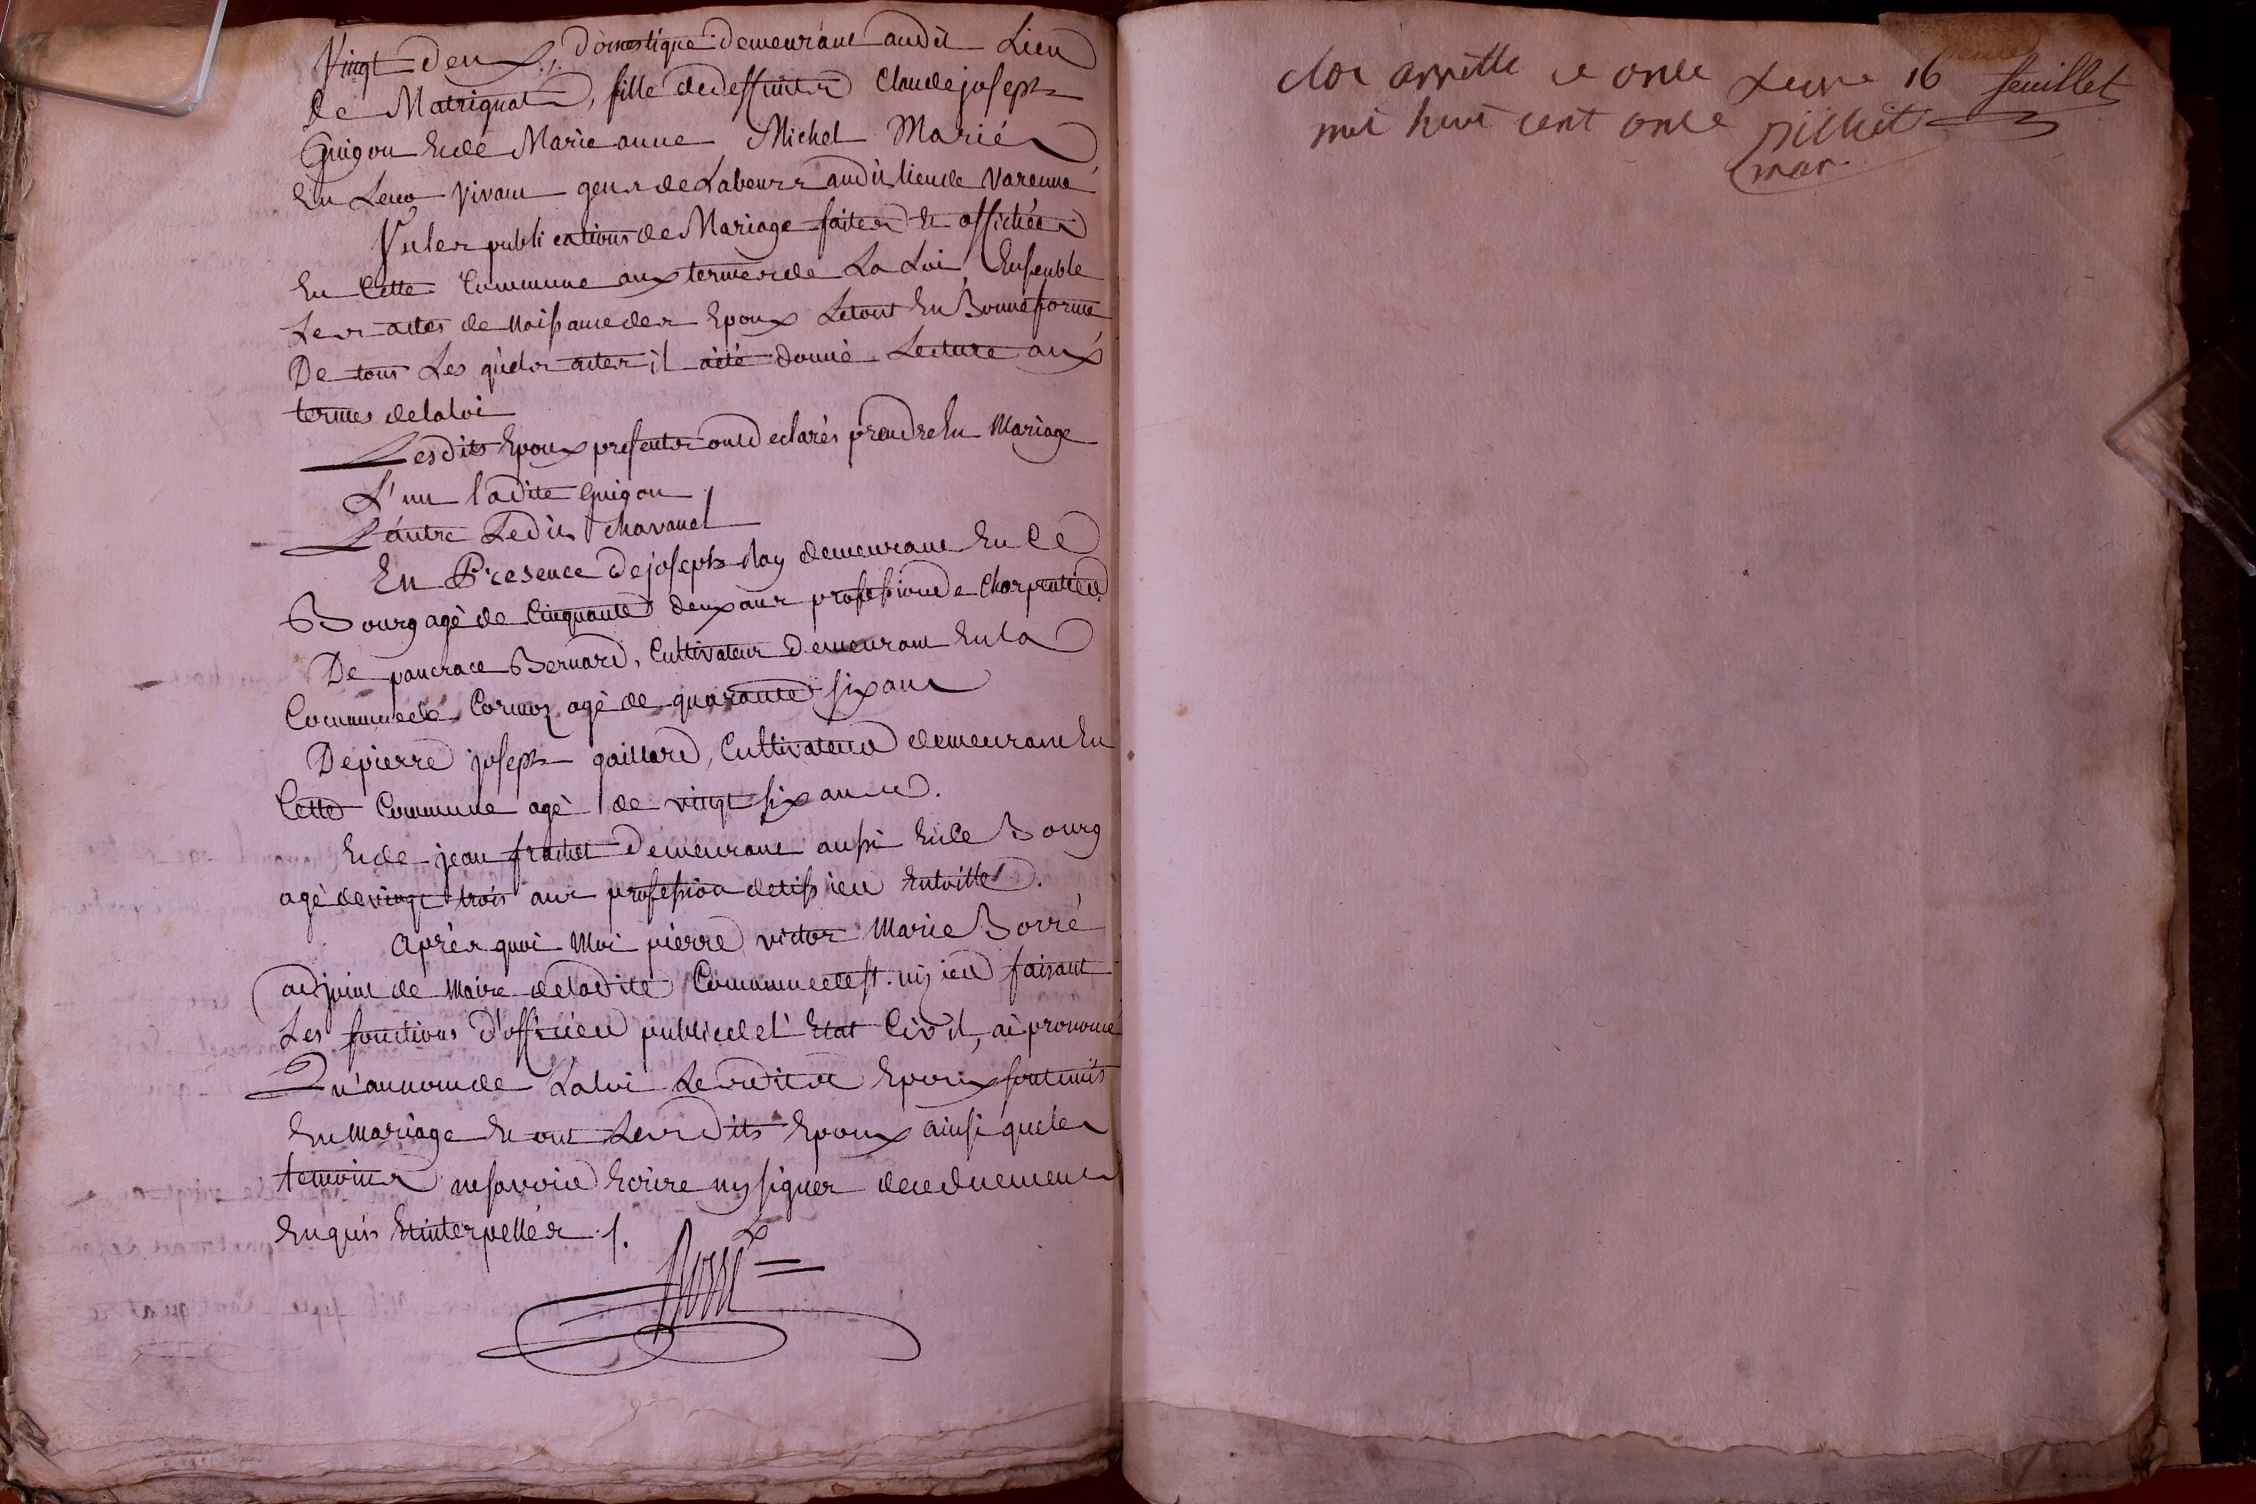 Vingt deux, domestique demeurant audit Lieu
de Matrignat, fille de deffunts Claude joseph
Guigon Et de Marie anne Michel Mariés
En Leur vivant gens de Labeurs audit lieu de Varenne
Vu les publications de Mariage faites Et affichées
En Cette Commune aux termes de La Loi, Ensemble
Les actes de Naissance des Epoux Le tout En Bonne forme
De tous Les quels actes il a été donné Lecture aux
termes de la loi
Lesdits Epoux presents ont declarés prendre En Mariage
L'un ladite Guigon
L'autre Ledit Chavanel
En Presence de joseph Nay demeurant En Ce
Bourg agé de Cinquante deux ans profession de Charpentier
De pancrace Bernard, Cultivateur demeurant En la
Commune de Cormoz agé de quarante six ans
De pierre joseph gaillard, Cultivateur demeurant En
Cette Commune agé de vingt six ans.
Et de jean frachet demeurant aussi En Ce Bourg
agé de vingt trois ans profession de tissier En toille.
Aprés quoi Moi pierre victor Marie Borré
adjoint de Maire de ladite Commune de st. nizier faisant
Les fonctions d'officier public de l'Etat Civil, ai prononcé
Qu'au nom de La loi Lesdits Epoux sont unis
En mariage Et ont Lesdits Epoux ainsi que les
temoins ne savoir Ecrire ny signer de ce duement
Enquis Et interpellés.
Borré
clos arrette ce onze 16 feuillet
mil huit cent onze